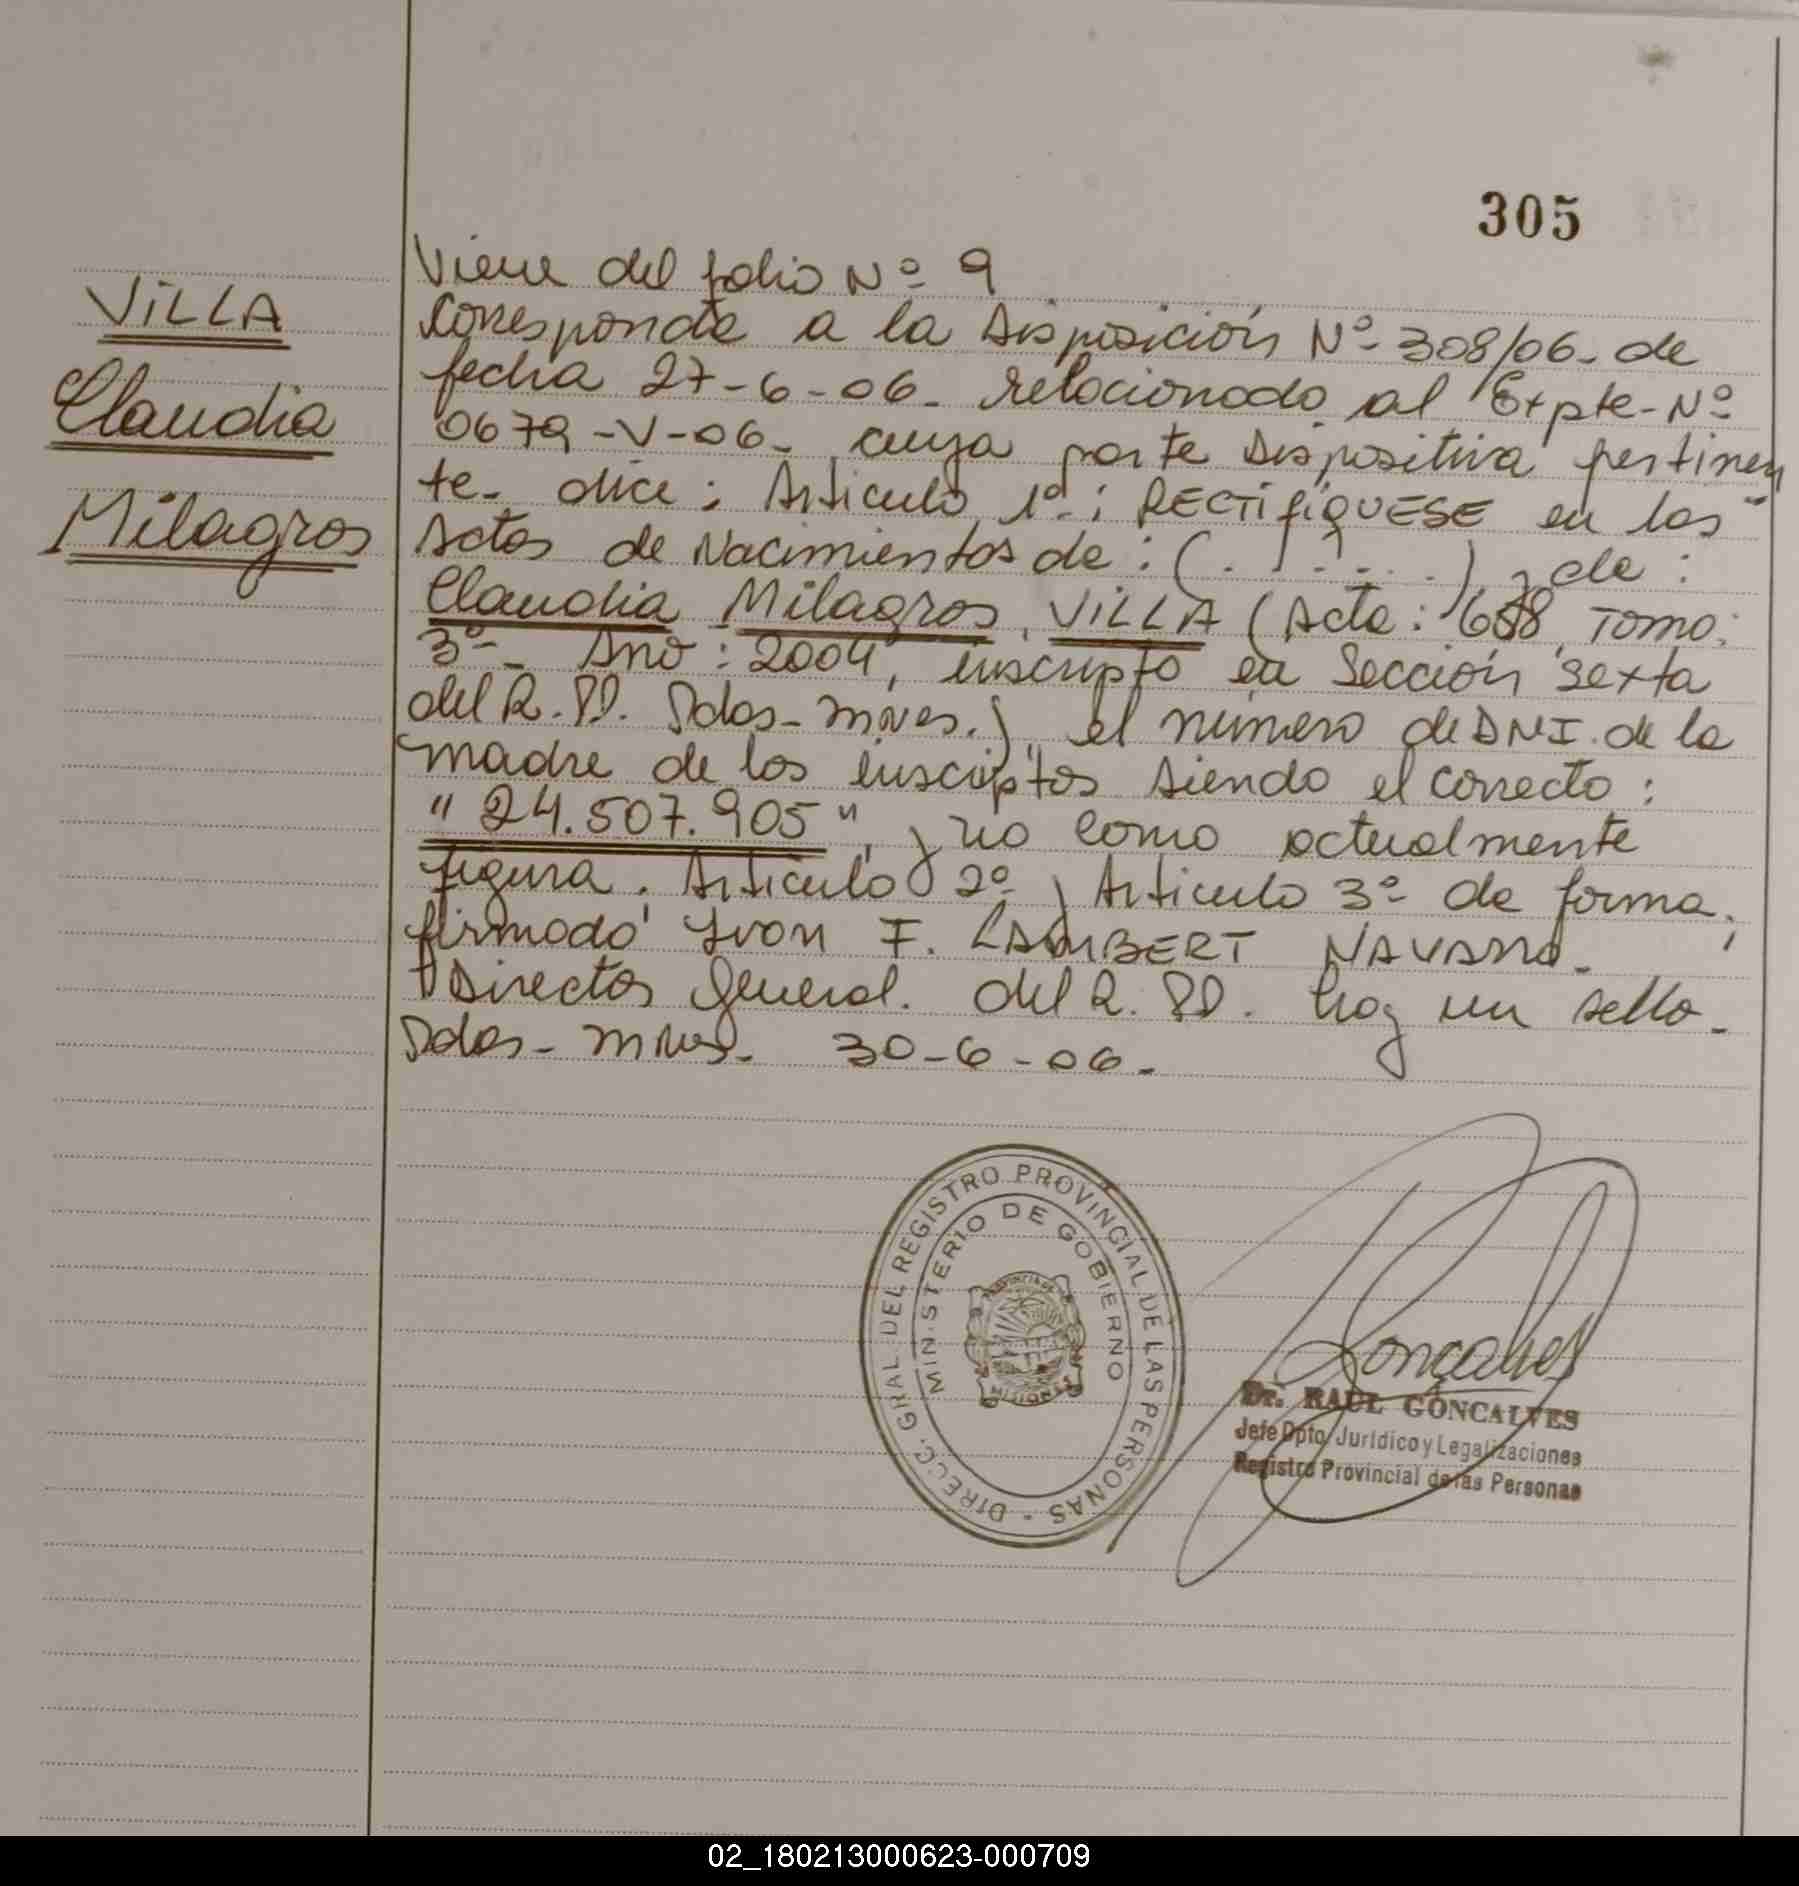 305
VILLA
Claudia
Milagros
Viene del folio Nº 9
Corresponde a la Disposición Nº 308/06- de
fecha 27-6-06- relacionado al Expte-Nº
0679-V-06- cuya parte Dispositiva pertinen
te- dice: Artículo 1º: RECTIFÍQUESE en las
Actas de Nacimientos de: (. . . . . .) y de:
Claudia Milagros VILLA (Acta: 658, Tomo:
3º- Año: 2004, inscripto en Sección Sexta
del R.PP. Pdas-mnes.) el número de DNI. de la
madre de los inscriptos siendo el correcto:
"24.507.905", y no como actualmente
figura. Artículo 2º y Artículo 3º de forma;
firmado Ivon F. LAMBERT NAVARRO-
Director General. del R.PP. hay un sello-
Pdas- mnes- 30-6-06-
DIRECC. GRAL. DEL REGISTRO PROVINCIAL DE LAS PERSONAS -
MINISTERIO DE GOBIERNO
PROVINCIA DE
MISIONES
Gonçalves
Dr. RAUL GONCALVES
Jefe Dpto. Jurídico y Legalizaciones
Registro Provincial de las Personas
02_180213000623-000709